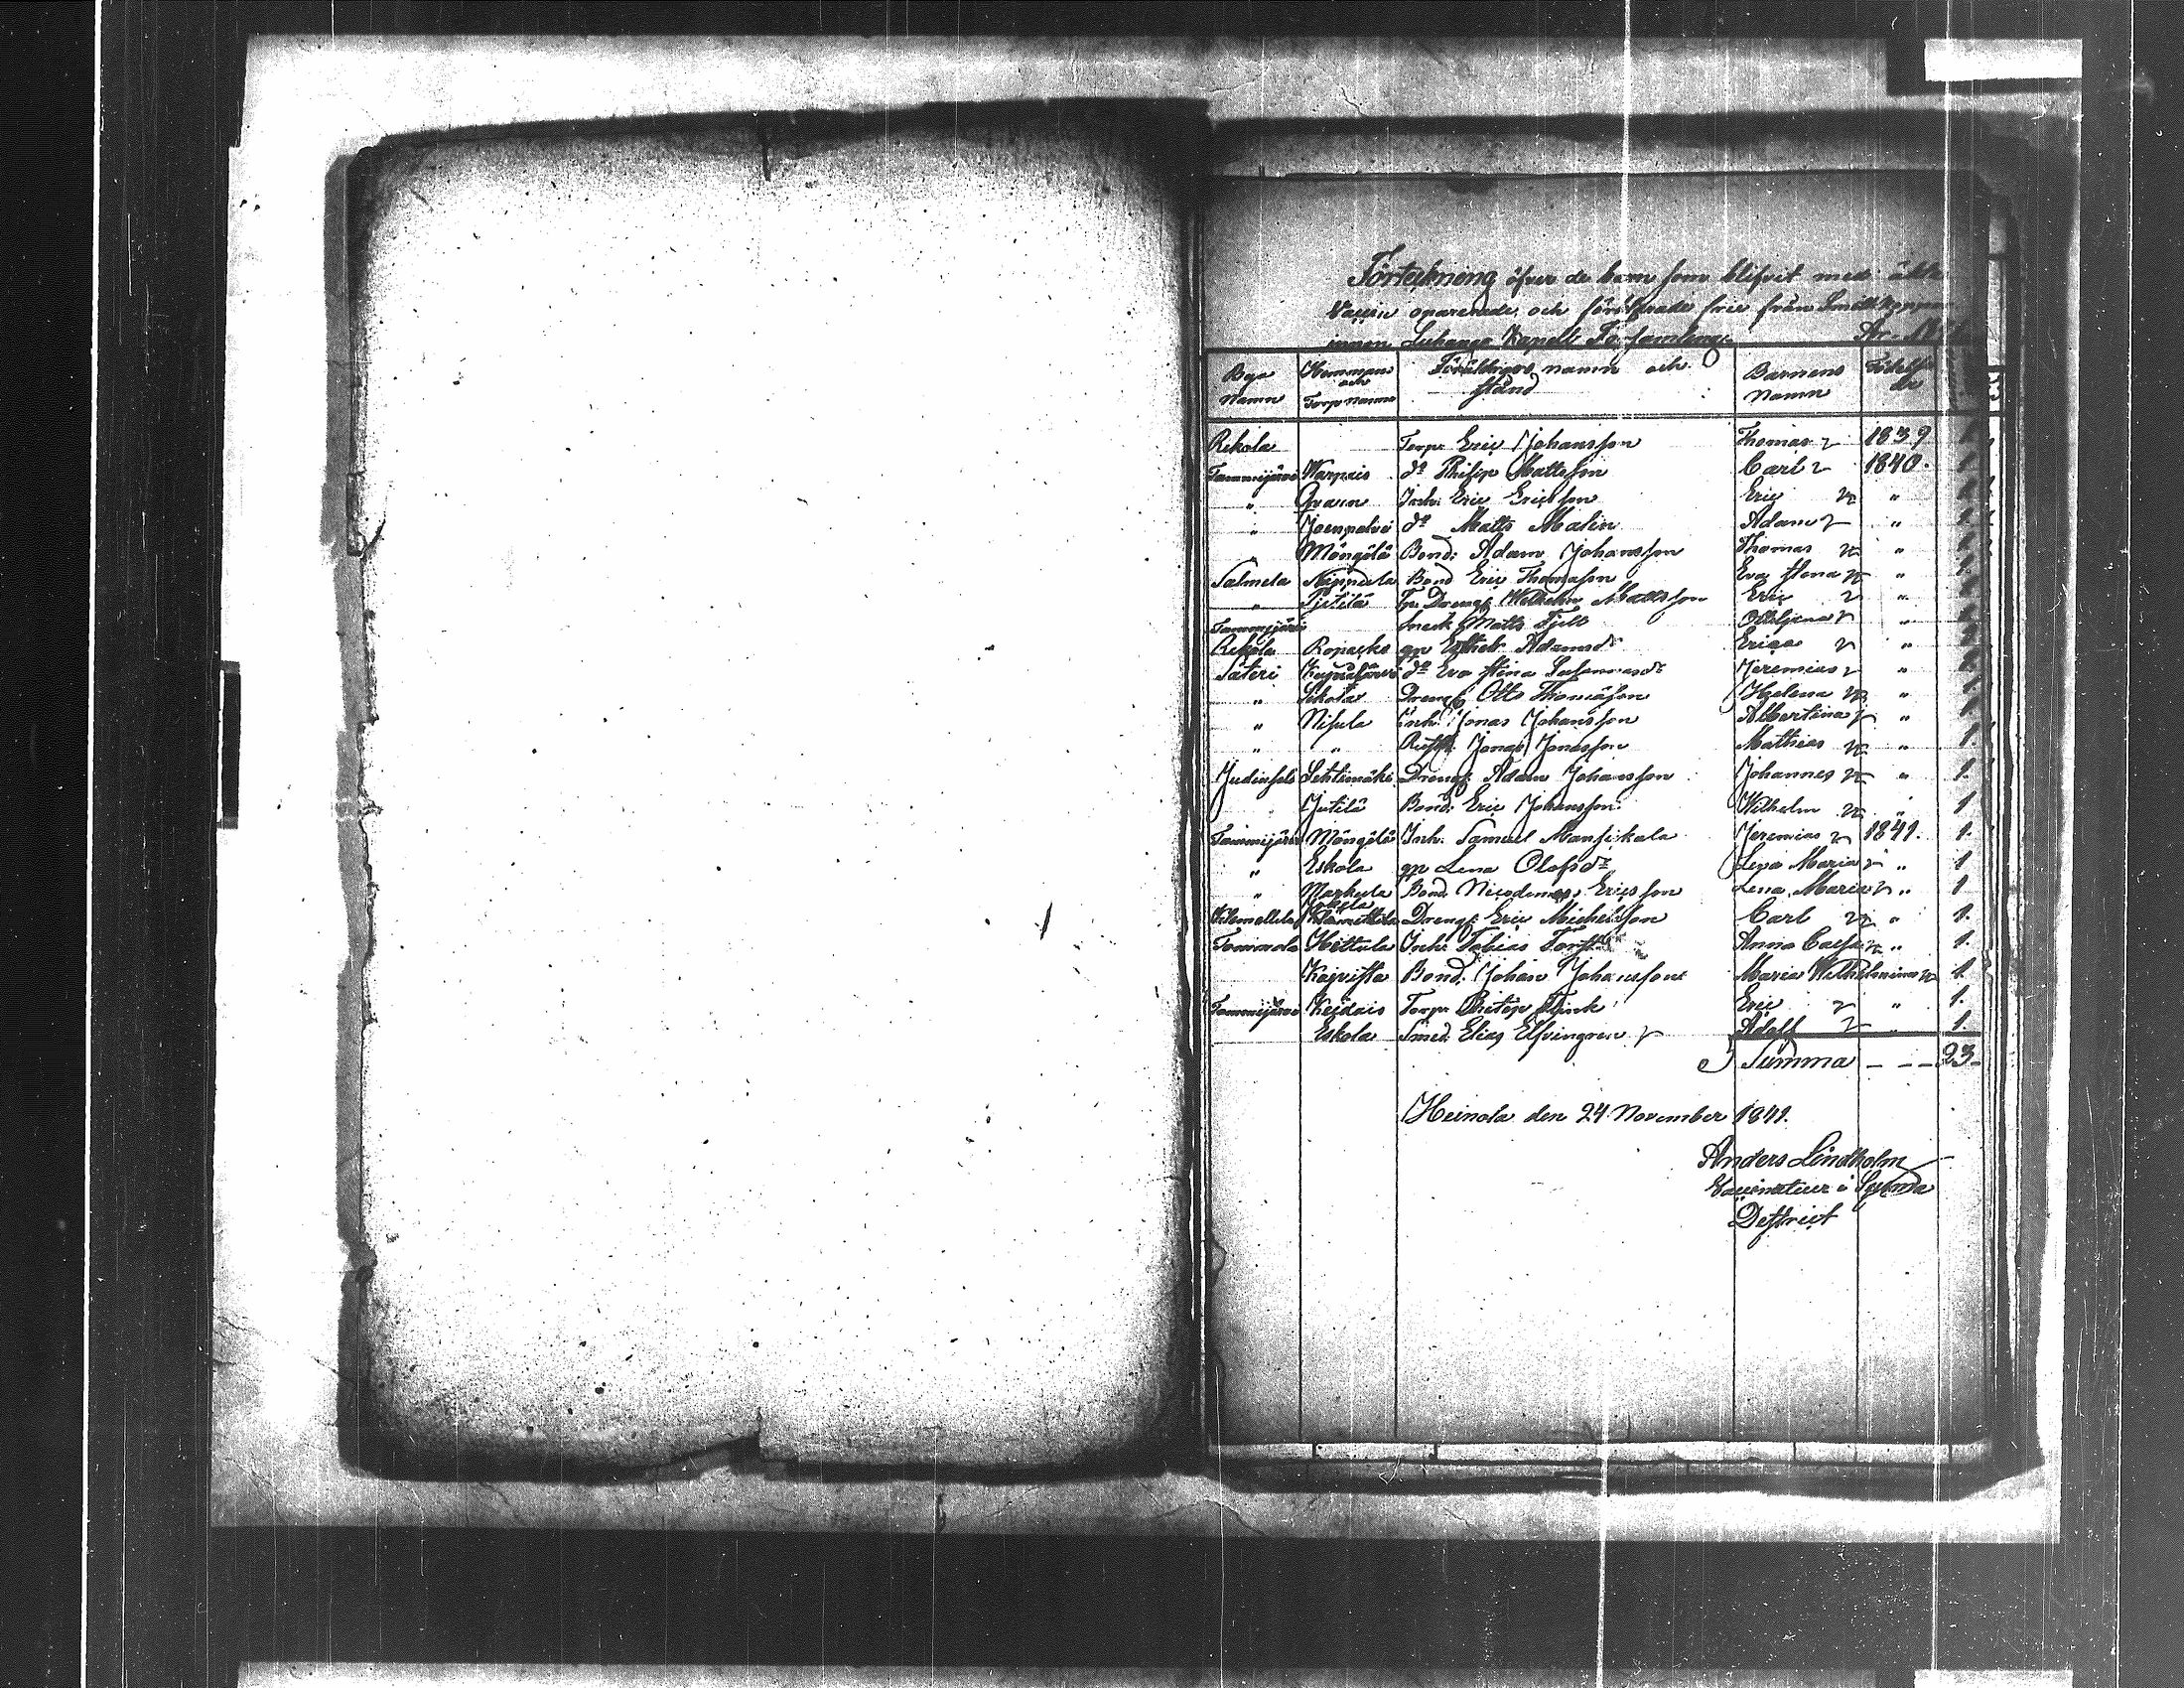 Förteckning öfver de barn som blifvit med äkta
Vaccin opererade och förklarade frie från Smittkoppor
innom Luhango Kapells Församling År
Bya Namn Hemmans och Torp namn Föräldrars namn och stånd Barnens Namn Födelse år
Rekola Torp. Eric Johansson Thomas 1839 1
Tammijärvi Warpais d:o Philip Mattsson Carl 1840. 1
" Inh. Eric Ericsson Eric " 1
" Joenpolvi d:o Matts Malin Adam " 1
" Möngölä Bond: Adam Johansson Thomas " 1
Salmela Nappula Bond Eric Thomasson Eva Stena " 1
" Pjetilä Drengs Wilhelm Mattsson Eric " 1
Tammijärvi Matts Fjelt "
Rekola Ropacko Adamsd:r Erica " 1
Säteri d:o Eva Stina Jeremias " 1
" Sikola Dreng Otto Thomasson Helena " 1
" Nisula Inh. Jonas Johansson Albertina " 1
" " Jonas Jonasson Mathias " 1
Judinsalo Lehtimäki Drengs Adam Johansson Johannes " 1.
Jutilä Bond: Eric Johansson Wilhelm " 1
Tammijärvi Möngölä Inh. Samuel Mansikala Jeremias 1841. 1.
" Eskola Lena Olofsd:r Maria " 1
" Markula Bond. Nicodemus Ericsson Lena Maria " 1
Klemettilä Klemettilä Drengs Eric Michelsson Carl " 1.
Tommola Hottula Inh. Tobias Anna Caisa " 1.
Kajvista Bond. Johan Johansson Maria Wilhelmina 1.
Tammijärvi Keidais Torp. Flink Eric " 1.
Eskola Smed. Elias Elfvingren Adolf " 1.
Summa - - - 23-
Heinola den 24 November 1841.
Anders Lindholm
Vaccinateur i Sysmä
District